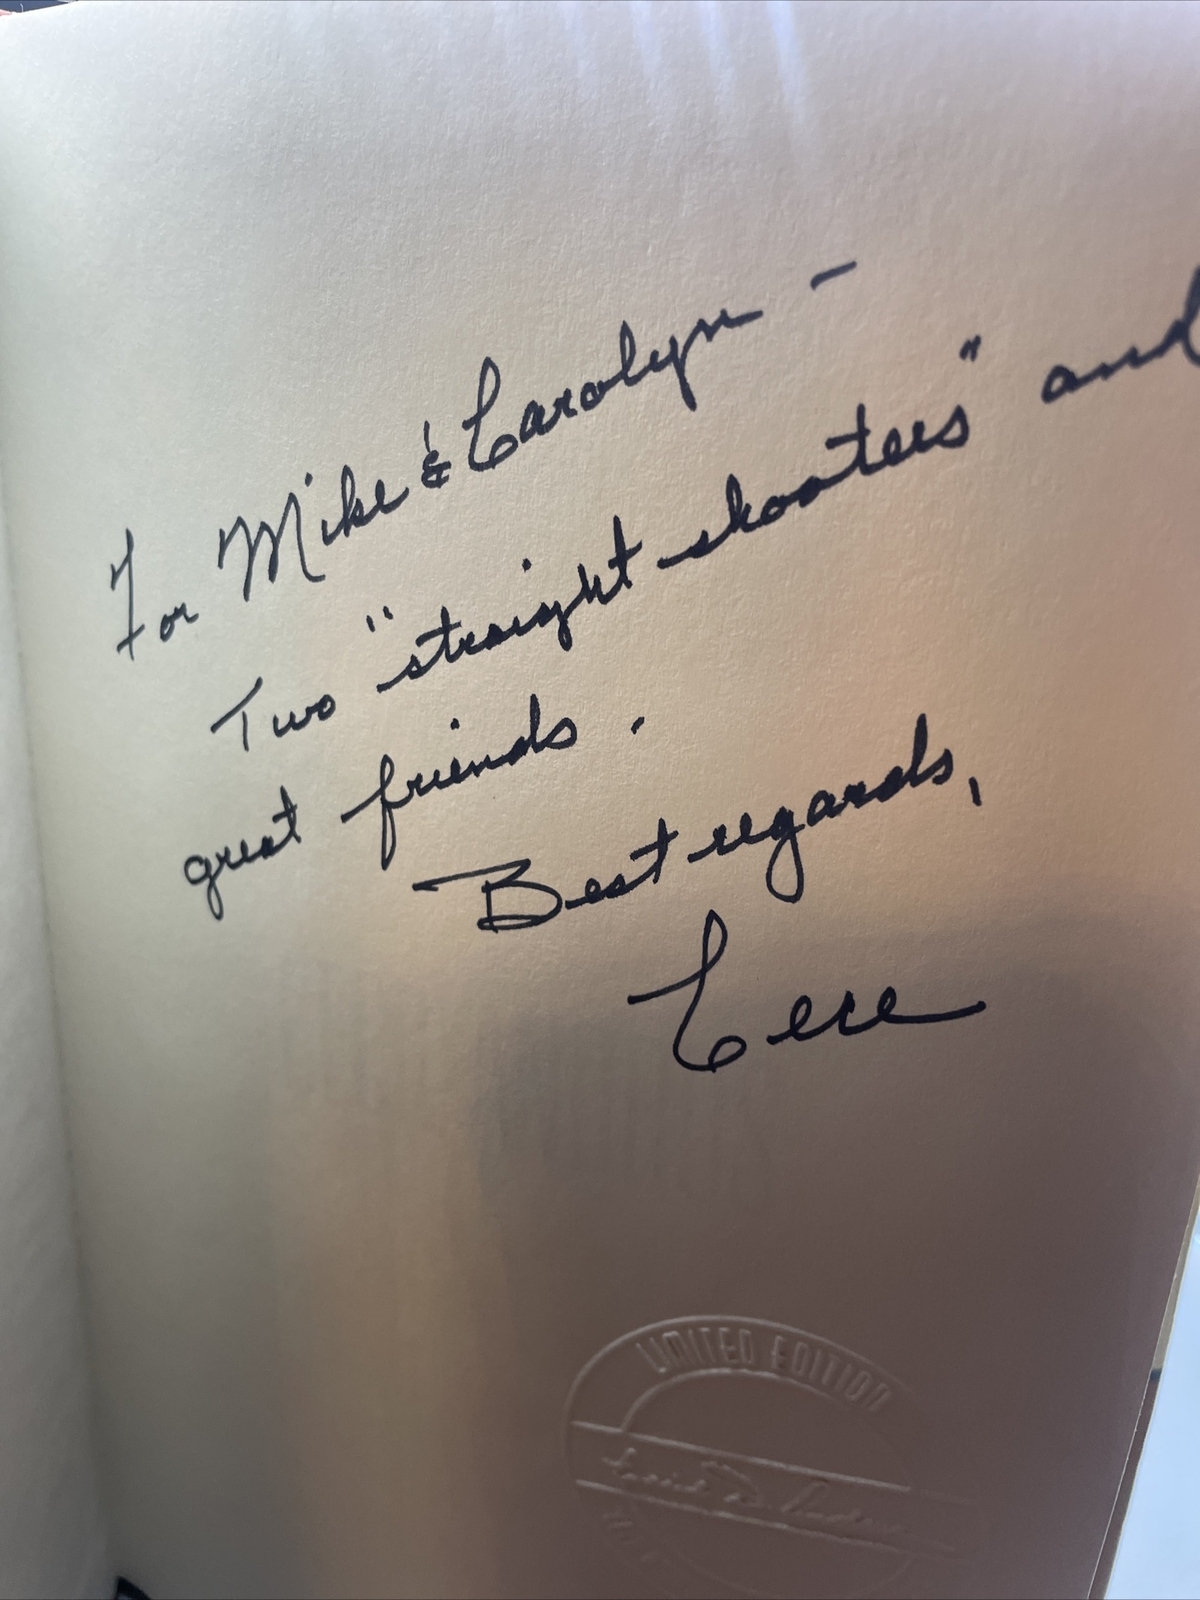 For Mike & Carolyn -
Two "straight shooters" and
great friends.
Best regards,
Cece
LIMITED EDITION